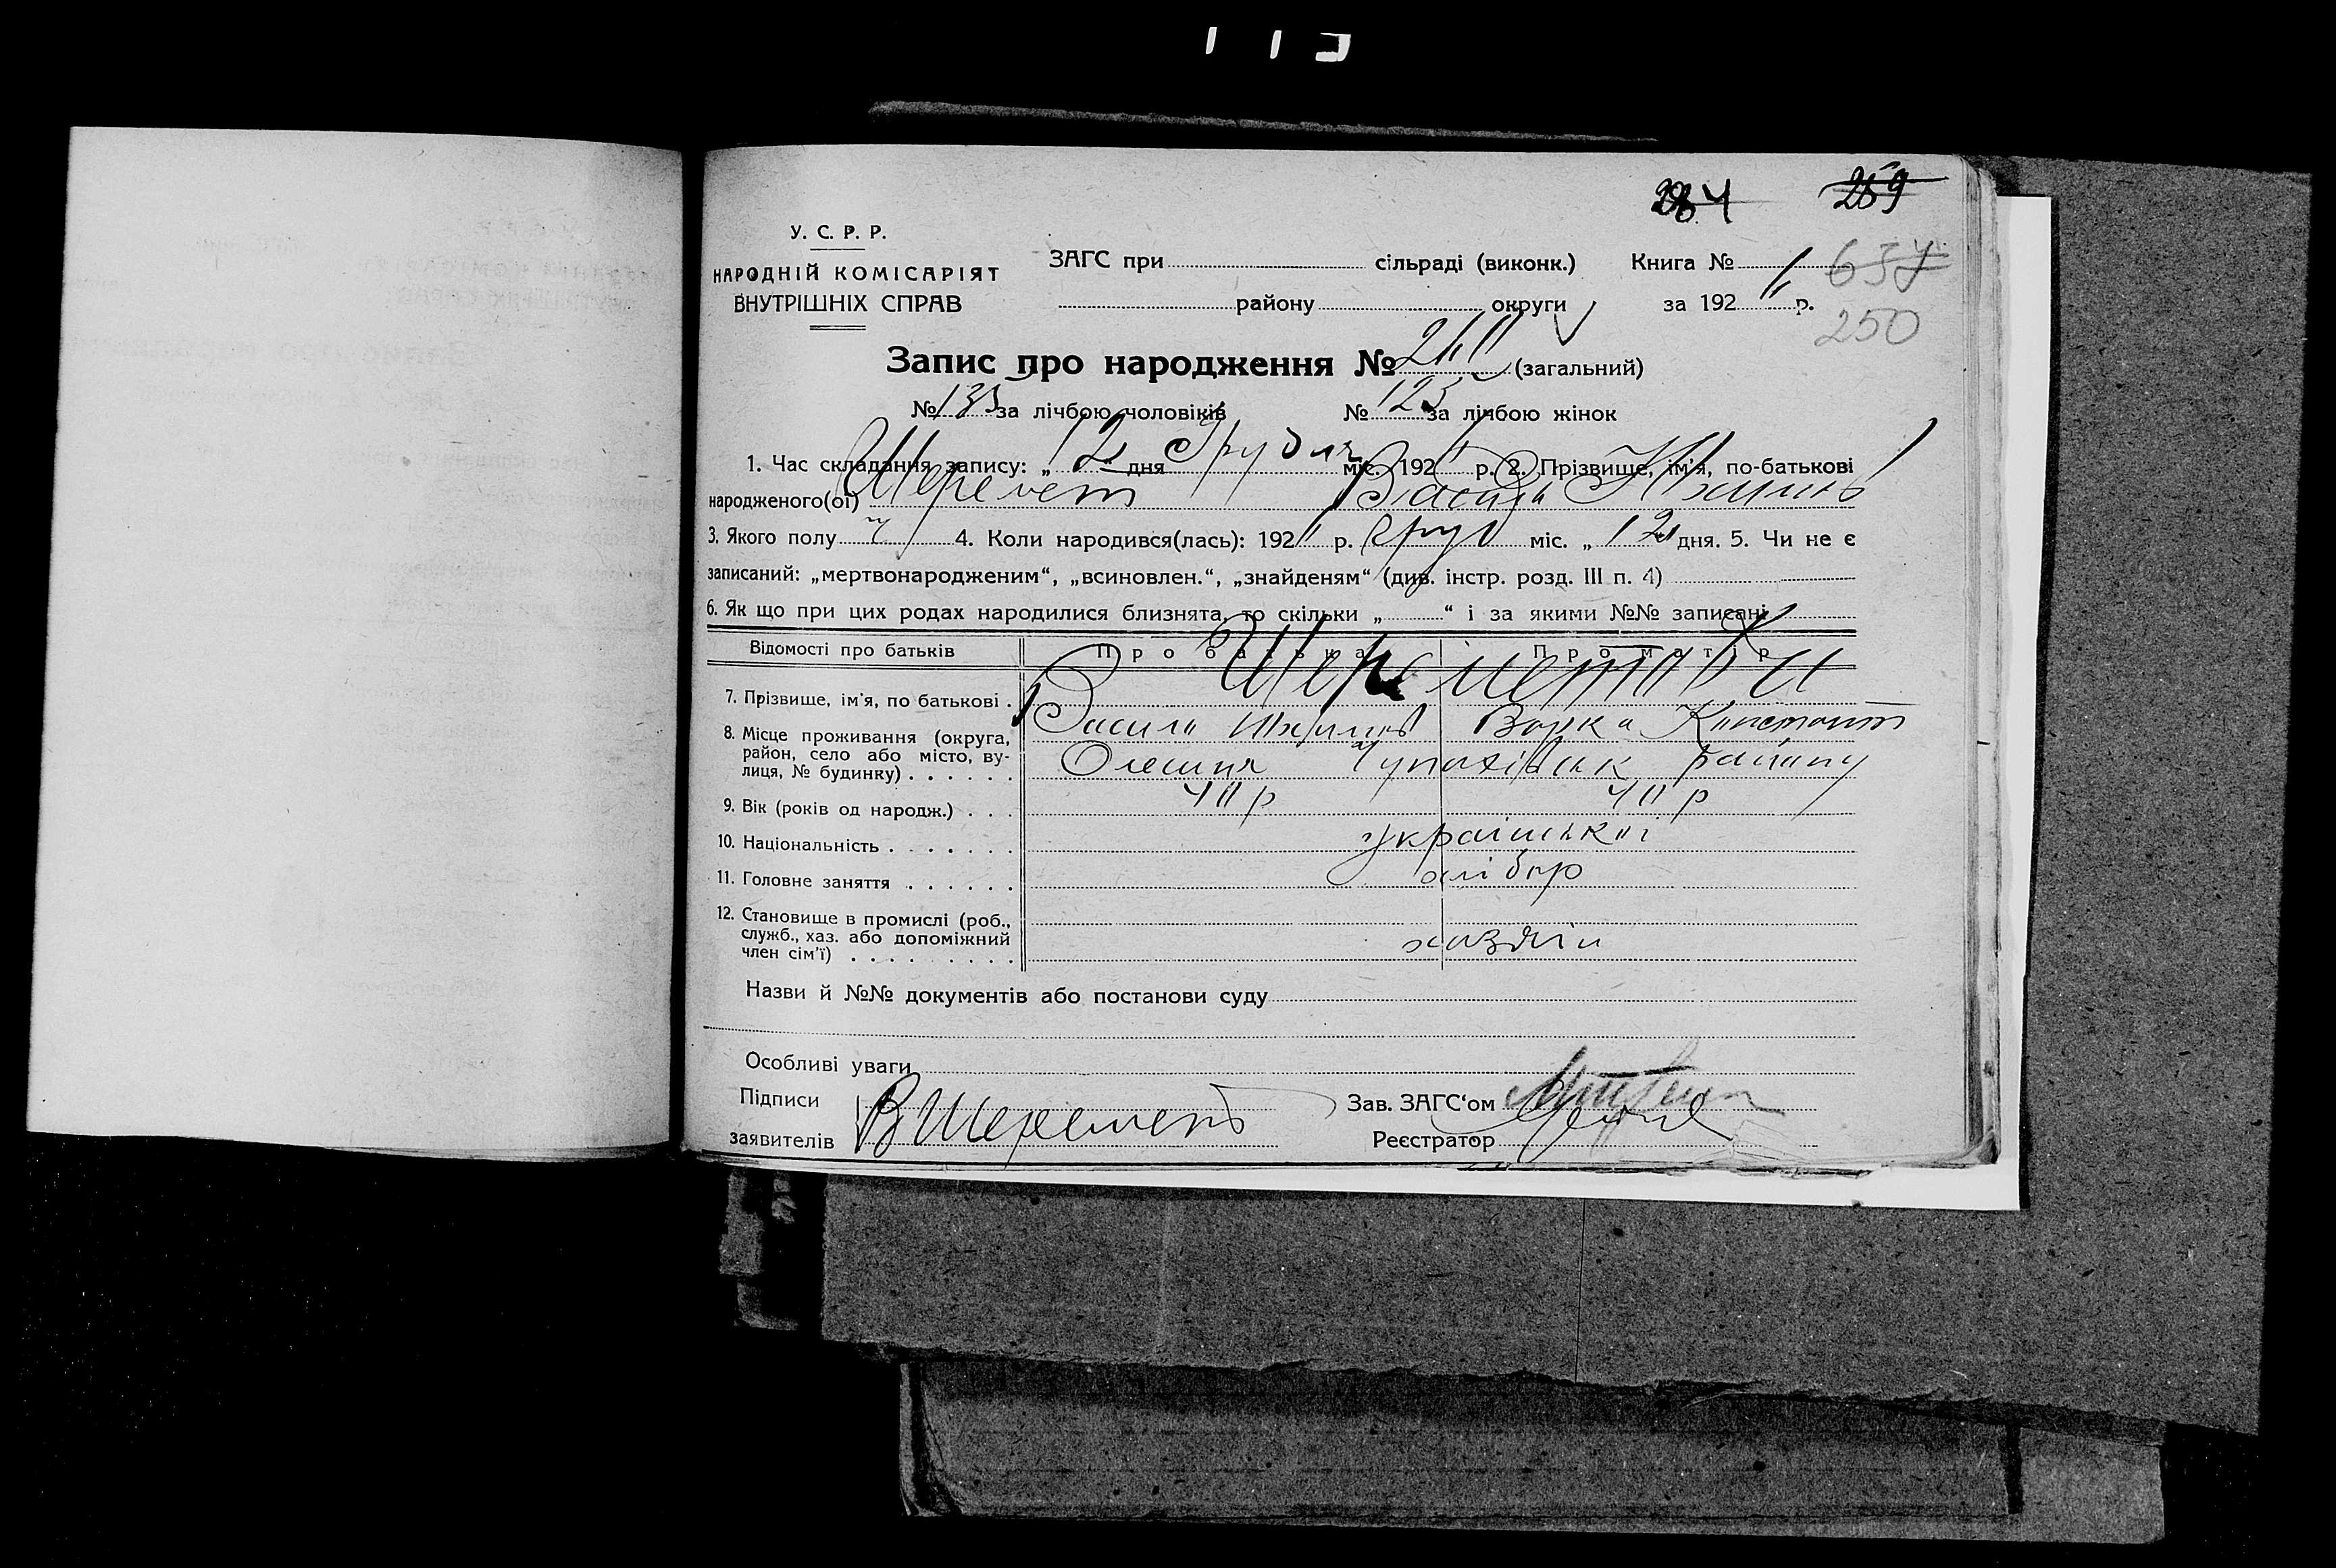 284 259
У. С. Р. Р.
НАРОДНІЙ КОМІСАРІЯТ
ВНУТРІШНІХ СПРАВ
ЗАГС при сільраді (виконк.) Книга № 637
району округи за 192 р. 250
Запис про народження № (загальний)
№ 135 за лічбою чоловіків № 125 за лічбою жінок
1. Час складання запису: „ 12 “ дня Грудня міс. 192 р. 2. Прізвище, ім'я, по-батькові
народженого(ої) Шеремет
3. Якого полу ч 4. Коли народився(лась): 192 р. груд міс. „ 12 дня. 5. Чи не є
записаний: „мертвонародженим“, „всиновлен.“, „знайденям“ (див. інстр. розд. III п. 4)
6. Як що при цих родах народилися близнята, то скільки „ “ і за якими №№ записані
Відомості про батьків Про батька Про матір
Шеремети
7. Прізвище, ім'я, по батькові .
Василь Варка Констант
8. Місце проживання (округа,
район, село або місто, ву-
лиця, № будинку) . . . . . .
Олешня Чупахівськ району
9. Вік (років од народж.) . . .
10. Національність . . . . . . .
українські
11. Головне заняття . . . . . .
хлібор
12. Становище в промислі (роб.,
служб., хаз. або допоміжний
член сім'ї) . . . . . . . . .
хазяін
Назви й №№ документів або постанови суду
Особливі уваги
Підписи Зав. ЗАГС‘ом
заявителів В Шеремет Реєстратор